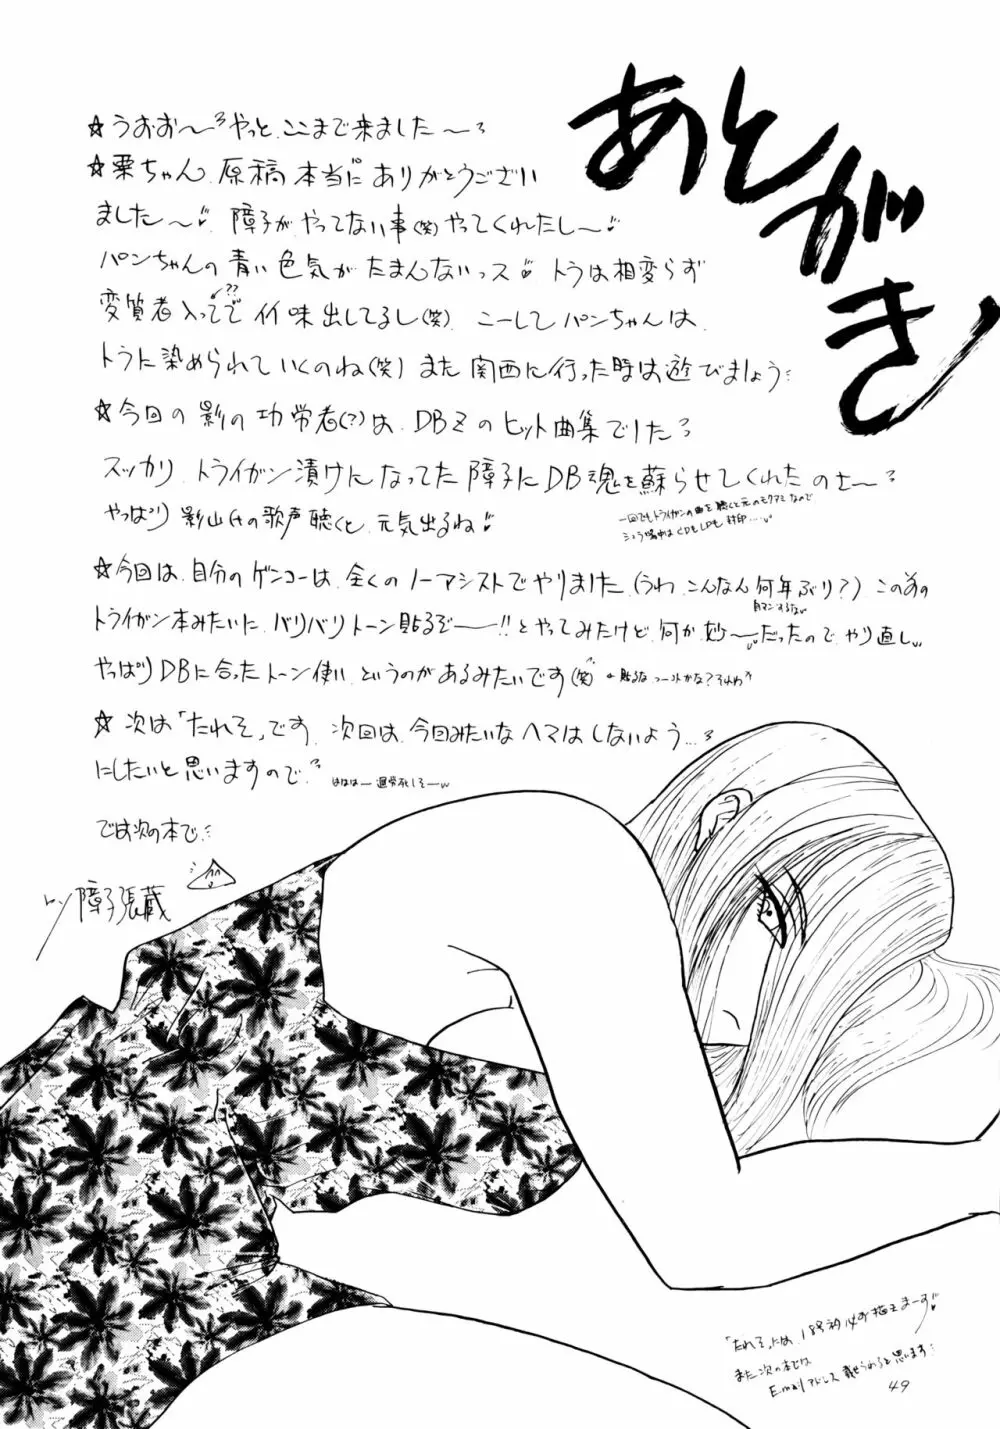 あとがき
☆うおお〜やっと、ここまで来ました〜
☆栗ちゃん、原稿本当にありがとうござい
ました〜 障子がやってない事(笑)やってくれたし〜
パンちゃんの青い色気がたまんないっス トラは相変らず
変質者入ってて イイ味出してるし(笑)、こーしてパンちゃんは、
??
トラに染められていくのね(笑)また関西に行った時は遊びましょう
☆今回の影の功労者(?)は、DBZのヒット曲集でした
スッカリ、トライガン漬けになってた障子にDB魂を蘇らせてくれたのさ〜
やっぱり影山さんの歌声聴くと、元気出るね
一回でもトライガンの曲を聴くと元のモクアミなので
シュラ場中はCDもLDも封印……
☆今回は、自分のゲンコーは、全くのノーアシストでやりました、(うわ、こんなん何年ぶり?)この前の
自マンするない
トライガン本みたいに、バリバリトーン貼るぞ――!!とやってみたけど、何か、妙〜だったので、やり直し
やっぱりDBに合ったトーン使い、というのがあるみたいです(笑)
☆次は「たれそ」です、次回は、今回みたいなヘマはしないよう…
にしたいと思いますので、
はははー過労死しそー
では次の本で
障子張蔵
「たれそ」には、18号初め描きまーす
また次の本では
Emailアドレス載せられると思います
49